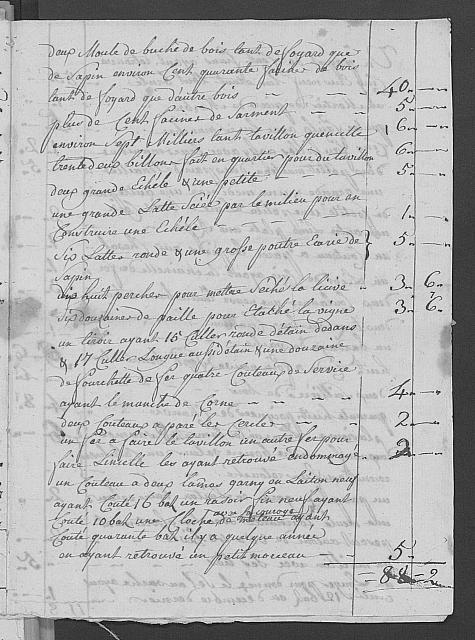 deux Moule de buche de bois tant de foyard que
de Sapin environ Cent quarante faines de bois
tant de foyard que d'autre bois - - 40 - -
plus de Cent faines de Sarment - - 5 - -
environ Sept Milliers tant tavillon que 16 - -
trente deux billons fait en quartier pour du tavillon 6 - -
deux grande Echéle & une petite - - 5 - -
une grande Latte Sciée par le milieu pour en
Construire une Echéle - - 1 - -
Six Lattes ronde & une grosse poutre Ecarie de } 5 - -
Sapin
dix huit perches pour mettre Seché la - 3 - 6 -
Six douzaines de paille pour Etaché la vigne 3 - 6 -
un tiroir ayant 15 Culler ronde d'étain dedans
& 17 Culler Longue aussi d'étain & une douzaine
de fourchette de fer quatre Couteaux de Service
ayant le manche de Corne - - 4 - -
deux Couteaux a paré les Cercles - - 2 - -
un fer a faire le tavillon un autre fer pour
faire les ayant retrouvé endomagé 2 - -
un Couteau a deux lames garny en Laiton neuf
ayant Couté 16 bat un rasoir fin neuf ayant
Couté 10 bat une Cloche de méteau ayant
avec Sa couroye
Couté quarante bat il y a quelque année
en ayant retrouvé un petit morceau - - 5 -
- 88 - 2 -